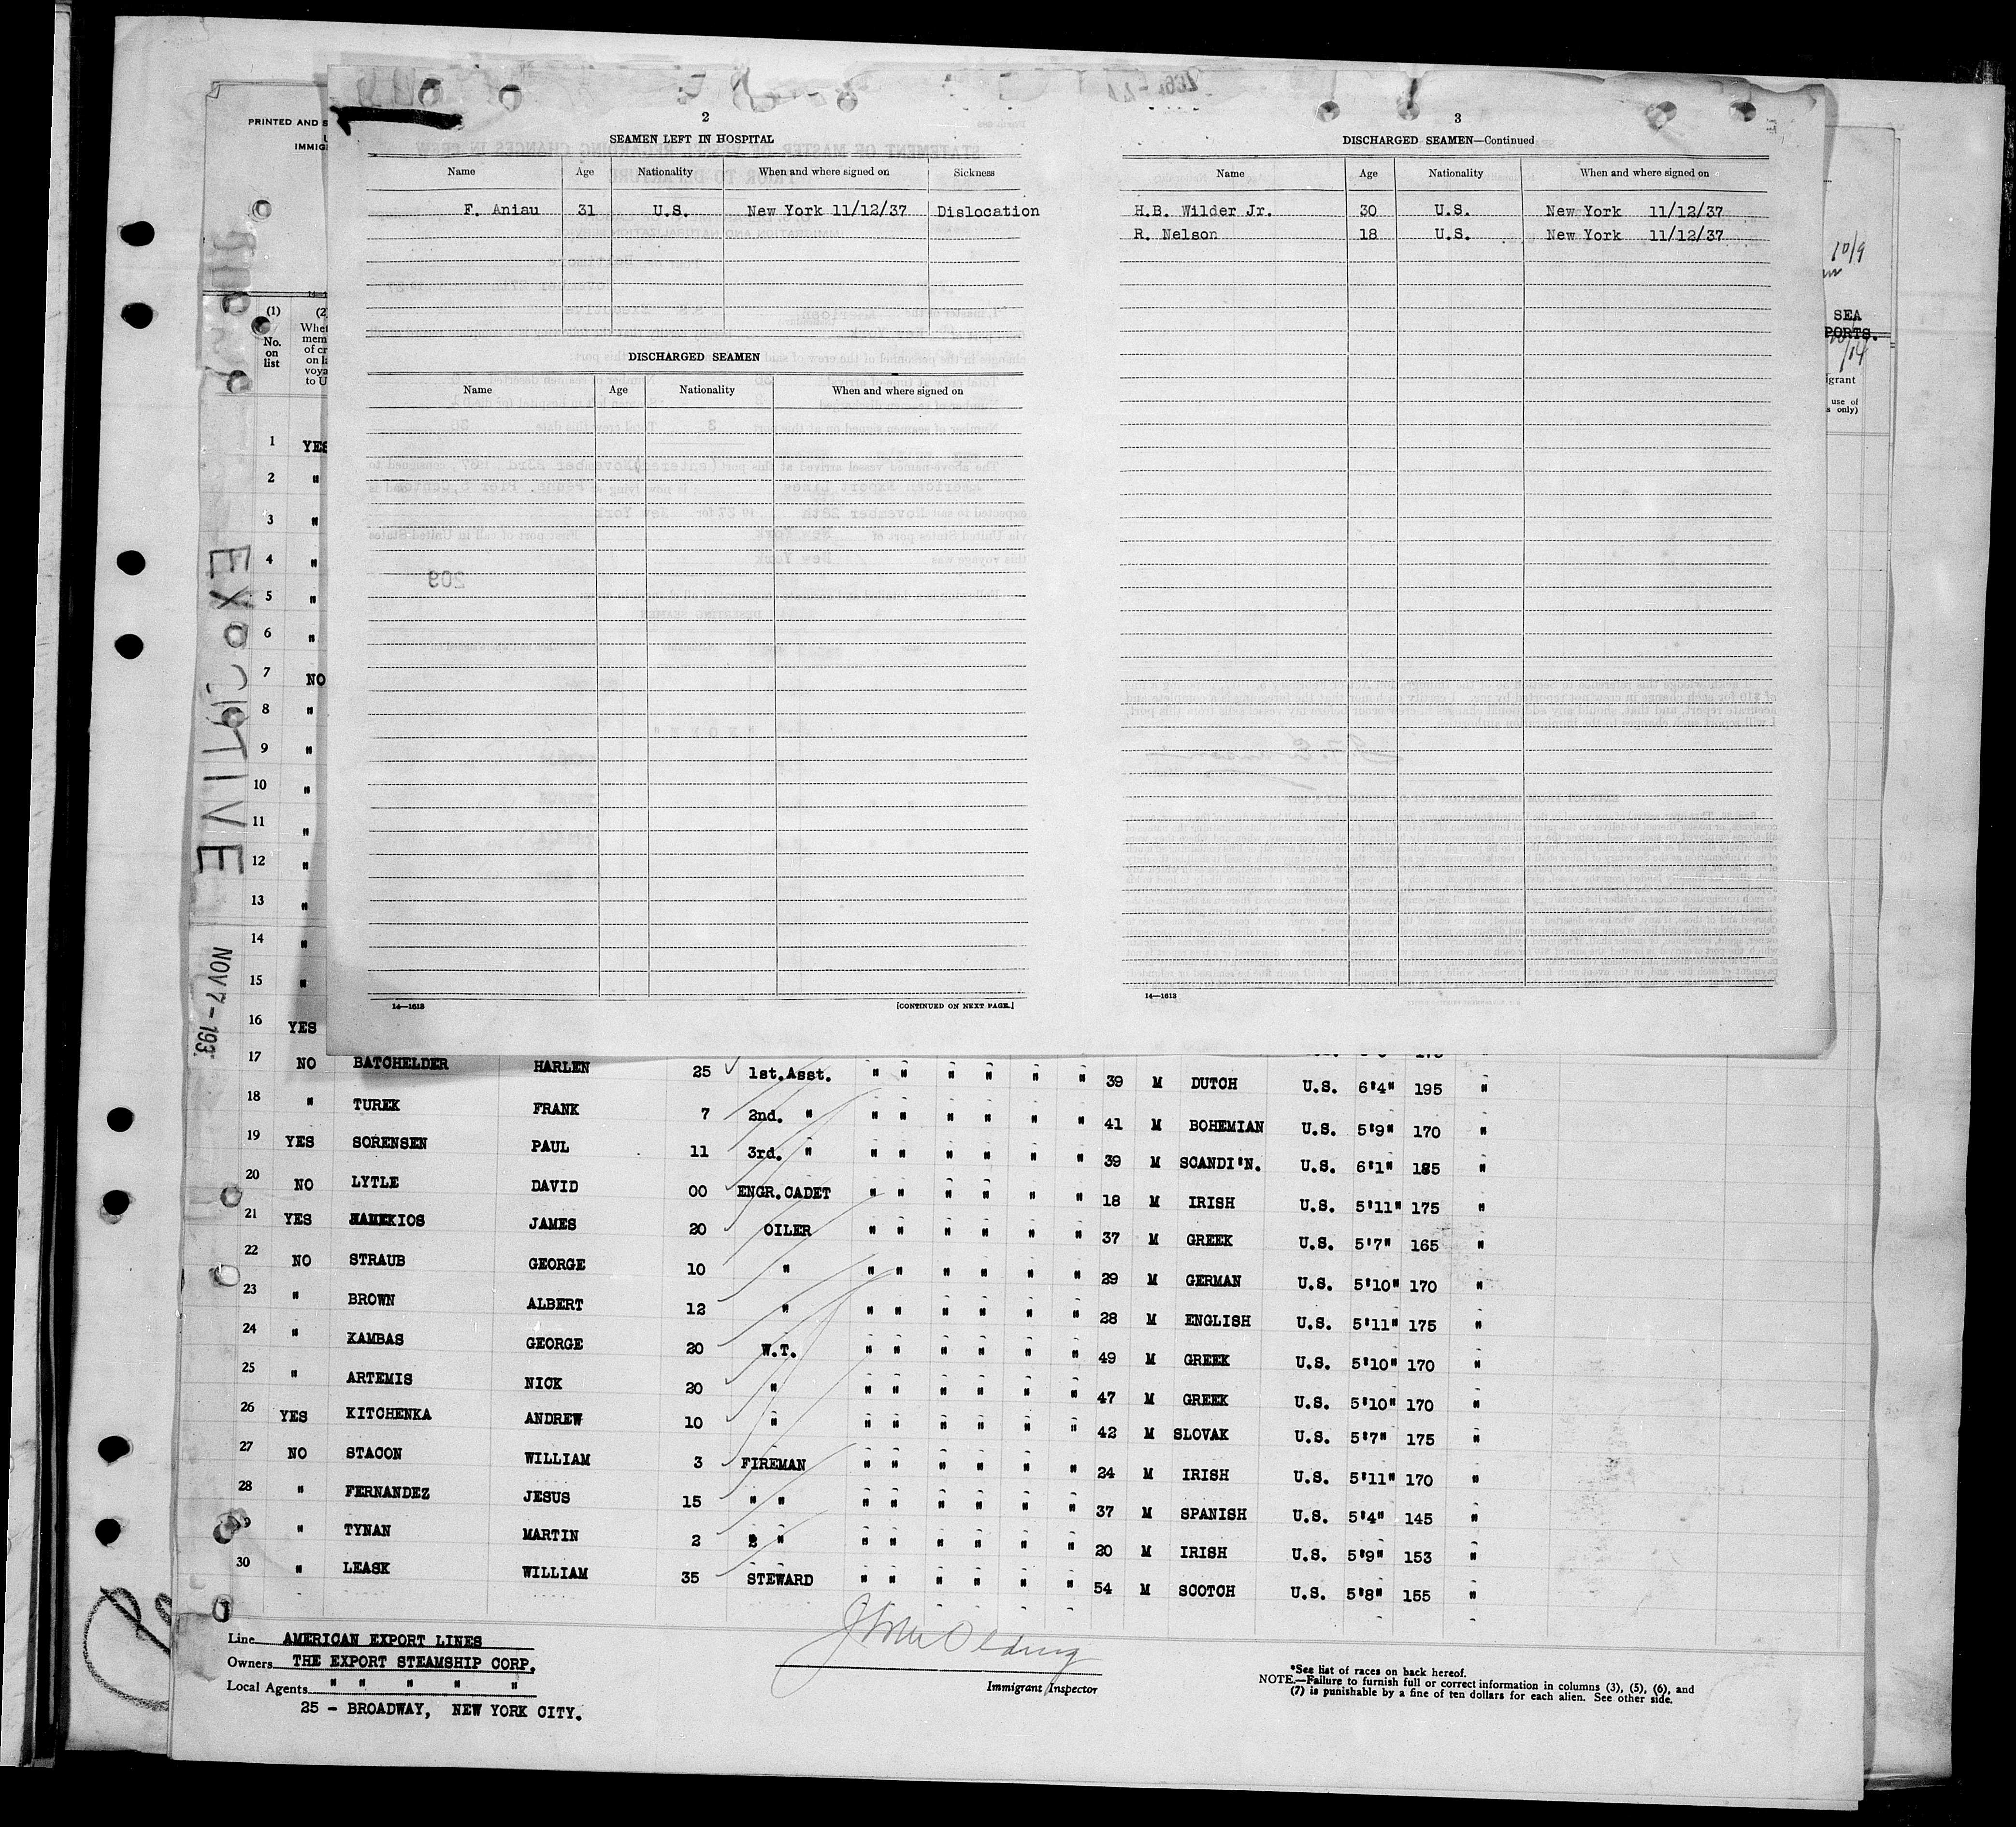 2
SEAMEN LEFT IN HOSPITAL
Name Age Nationality When and where signed on Sickness
F. Aniau 31 U.S. New York 11/12/37 Dislocation
DISCHARGED SEAMEN
Name Age Nationality When and where signed on
14—1613 [CONTINUED ON NEXT PAGE.]
3
DISCHARGED SEAMEN—Continued
Name Age Nationality When and where signed on
H.B. Wilder Jr. 30 U.S. New York 11/12/37
R. Nelson 18 U.S. New York 11/12/37
14—1613
PRINTED AND S
IMMIG
10/9
SEA
PORTS.
/14
igrant
use of
s only)
(1) (2)
No. on list
Whet
mem
of cr
on la
voya
to U
EXOCHATIVE
NOV 7 - 193
1 YES
2 "
3 "
4 "
5 "
6 "
7 NO
8 "
9 "
10 "
11 "
12 "
13 "
14 "
15 "
16 YES
17 NO BATCHELDER HARLEN 25 1st.Asst. " " " " " " 39 M DUTCH U.S. 6'4" 195 "
18 " TUREK FRANK 7 2nd. " " " " " " " 41 M BOHEMIAN U.S. 5'9" 170 "
19 YES SORENSEN PAUL 11 3rd. " " " " " " " 39 M SCANDI'N. U.S. 6'1" 185 "
20 NO LYTLE DAVID 00 ENGR.CADET " " " " " " 18 M IRISH U.S. 5'11" 175 "
21 YES JAMES 20 OILER " " " " " " 37 M GREEK U.S. 5'7" 165 "
22 NO STRAUB GEORGE 10 " " " " " " " 29 M GERMAN U.S. 5'10" 170 "
23 " BROWN ALBERT 12 " " " " " " " 28 M ENGLISH U.S. 5'11" 175 "
24 " KAMBAS GEORGE 20 W.T. " " " " " " 49 M GREEK U.S. 5'10" 170 "
25 " ARTEMIS NICK 20 " " " " " " " 47 M GREEK U.S. 5'10" 170 "
26 YES KITCHENKA ANDREW 10 " " " " " " " 42 M SLOVAK U.S. 5'7" 175 "
27 NO STACON WILLIAM 3 FIREMAN " " " " " " 24 M IRISH U.S. 5'11" 170 "
28 " FERNANDEZ JESUS 15 " " " " " " " " 37 M SPANISH U.S. 5'4" 145 "
" TYNAN MARTIN 2 " " " " " " " 20 M IRISH U.S. 5'9" 153 "
30 " LEASK WILLIAM 35 STEWARD " " " " " " 54 M SCOTCH U.S. 5'8" 155 "
Line AMERICAN EXPORT LINES
Owners THE EXPORT STEAMSHIP CORP.
Local Agents " " " " "
25 - BROADWAY, NEW YORK CITY.
Immigrant Inspector
*See list of races on back hereof.
NOTE.—Failure to furnish full or correct information in columns (3), (5), (6), and
(7) is punishable by a fine of ten dollars for each alien. See other side.